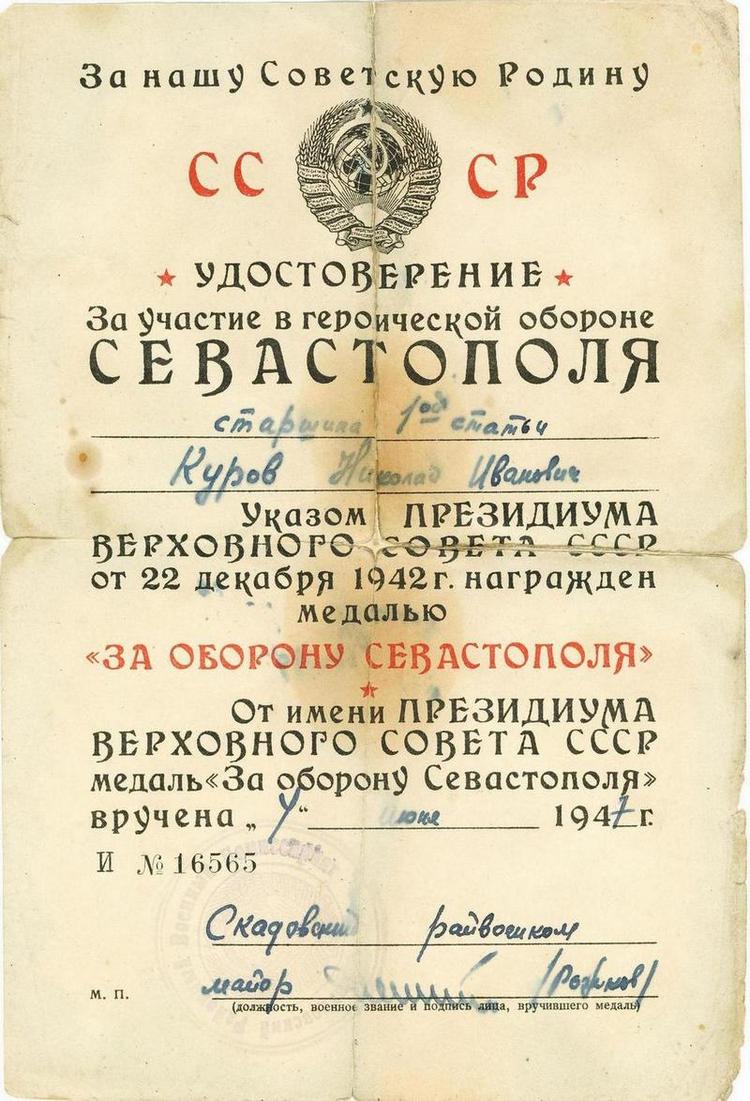 За нашу Советскую Родину
СССР
УДОСТОВЕРЕНИЕ
За участие в героической обороне
СЕВАСТОПОЛЯ
старшина 1ой статьи
Куров Николай Иванович
Указом ПРЕЗИДИУМА
ВЕРХОВНОГО СОВЕТА СССР
от 22 декабря 1942 г. награжден
медалью
«ЗА ОБОРОНУ СЕВАСТОПОЛЯ»
От имени ПРЕЗИДИУМА
ВЕРХОВНОГО СОВЕТА СССР
медаль «За оборону Севастополя»
вручена „ “ июне 1947 г.
И № 16565
Скадовский райвоенком
майор
м. п.
(должность, военное звание и подпись лица, вручившего медаль)